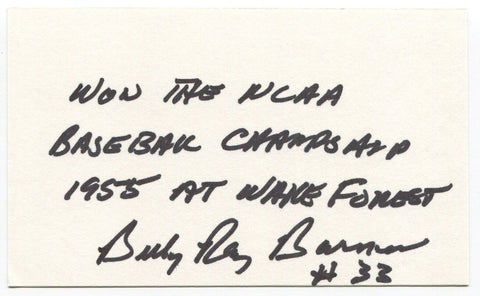 WON THE NCAA
BASEBALL CHAMPSHIP
1955 AT WAKE FOREST
Billy Ray Barnes
# 33